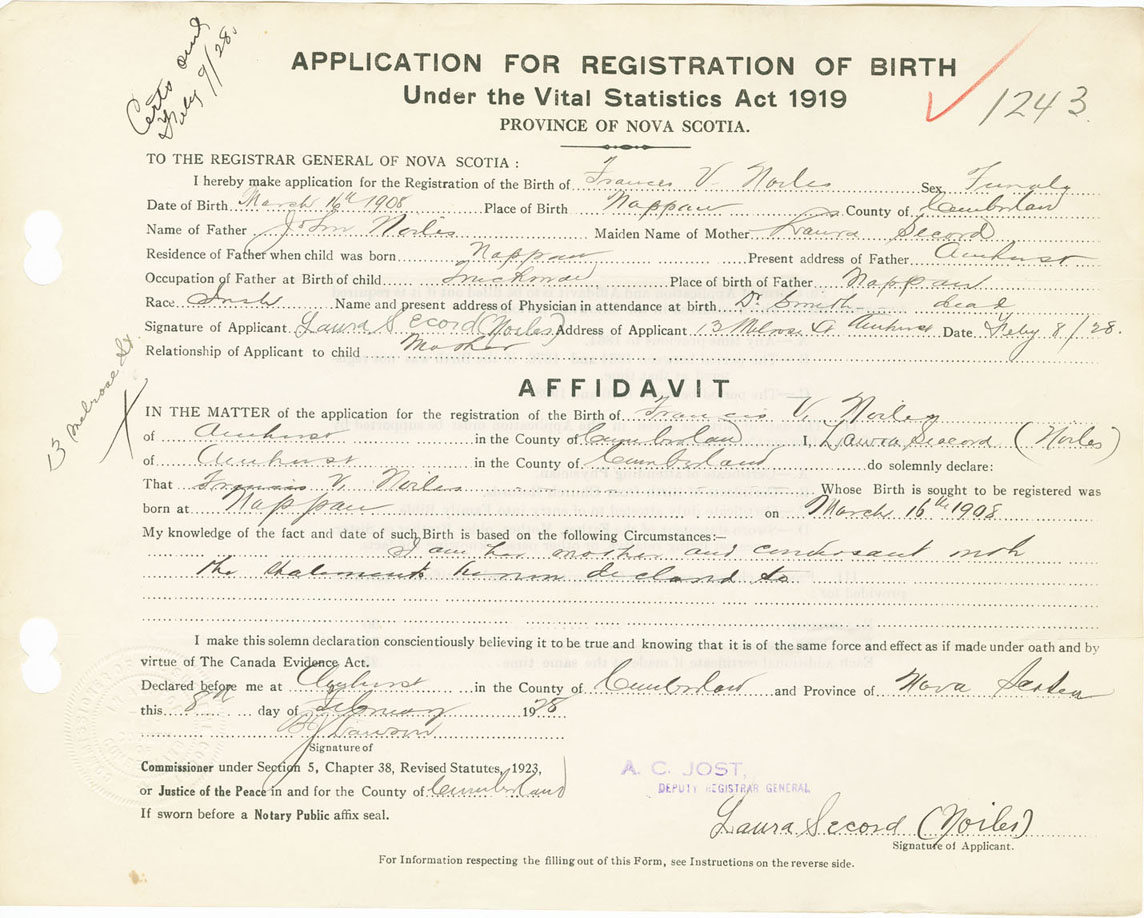 Certs sent
Feby 9/28.
APPLICATION FOR REGISTRATION OF BIRTH
Under the Vital Statistics Act 1919
PROVINCE OF NOVA SCOTIA.
1243
TO THE REGISTRAR GENERAL OF NOVA SCOTIA :
I hereby make application for the Registration of the Birth of Frances V. Noiles Sex Female
Date of Birth March 16th 1908 Place of Birth Nappan County of Cumberland
Name of Father John Noiles Maiden Name of Mother Laura Secord
Residence of Father when child was born Nappan Present address of Father Amherst
Occupation of Father at Birth of child Truckman Place of birth of Father Nappan
Race Irish Name and present address of Physician in attendance at birth Dr. Smith dead
Signature of Applicant Laura Secord (Noiles) Address of Applicant 13 Melrose St Amherst Date Feby 8/28.
Relationship of Applicant to child Mother
13 Melrose St.
AFFIDAVIT
IN THE MATTER of the application for the registration of the Birth of Francis V. Noiles
of Amherst in the County of Cumberland I, Laura Secord (Noiles)
of Amherst in the County of Cumberland do solemnly declare:
That Francis V. Noiles Whose Birth is sought to be registered was
born at Nappan on March 16th 1908
My knowledge of the fact and date of such Birth is based on the following Circumstances:—
I am her mother and conversant with
the statements herein declared to.
I make this solemn declaration conscientiously believing it to be true and knowing that it is of the same force and effect as if made under oath and by
virtue of The Canada Evidence Act.
Declared before me at Amherst in the County of Cumberland and Province of Nova Scotia
this 8th day of February 1928
Signature of
Commissioner under Section 5, Chapter 38, Revised Statutes, 1923,
or Justice of the Peace in and for the County of Cumberland
If sworn before a Notary Public affix seal.
A. C. JOST,
DEPUTY REGISTRAR GENERAL
Laura Secord (Noiles)
Signature of Applicant.
For Information respecting the filling out of this Form, see Instructions on the reverse side.